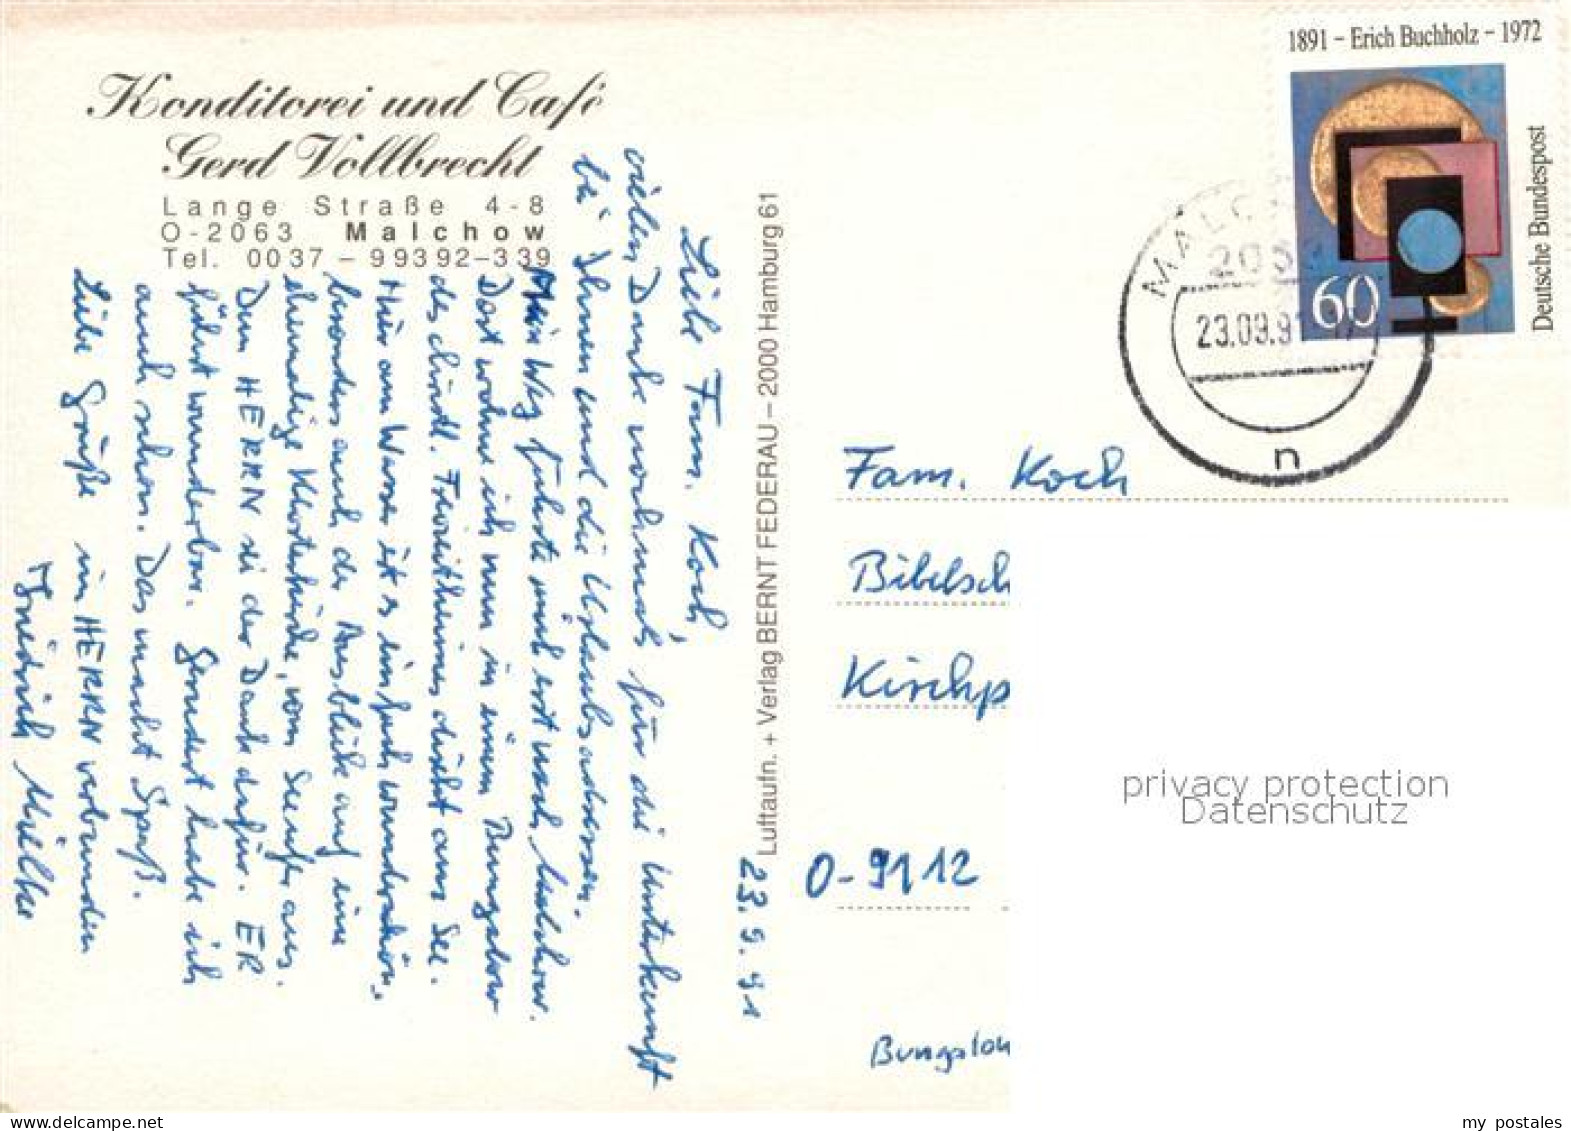 Konditorei und Café
Gerd Vollbrecht
Lange Straße 4-8
O-2063 Malchow
Tel. 0037 – 99392–339
Luftaufn. + Verlag BERNT FEDERAU – 2000 Hamburg 61
23.9.91
Liebe Fam. Koch,
vielen Dank nochmals für die Unterkunft
bei Ihnen und die Urlaubsadressen.
Mein Weg führte mich erst nach Malchow.
Dort wohne ich nun in einem Bungalow
des christl. Freizeitheimes direkt am See.
Hier am Wasser ist es einfach wunderschön,
besonders auch der Ausblick auf eine
ehemalige Klosterkirche, vom Seeufer aus.
Dem HERRN sei der Dank dafür. ER
führt wunderbar. Gerudert habe ich
auch schon. Das macht Spaß.
Liebe Grüße im HERRN verbunden
Friedrich
1891 – Erich Buchholz – 1972
Deutsche Bundespost
60
MALC
23.09.91
n
Fam. Koch
Bibelsch
Kirchp
O-9112
Bungalow
privacy protection
Datenschutz
my postales